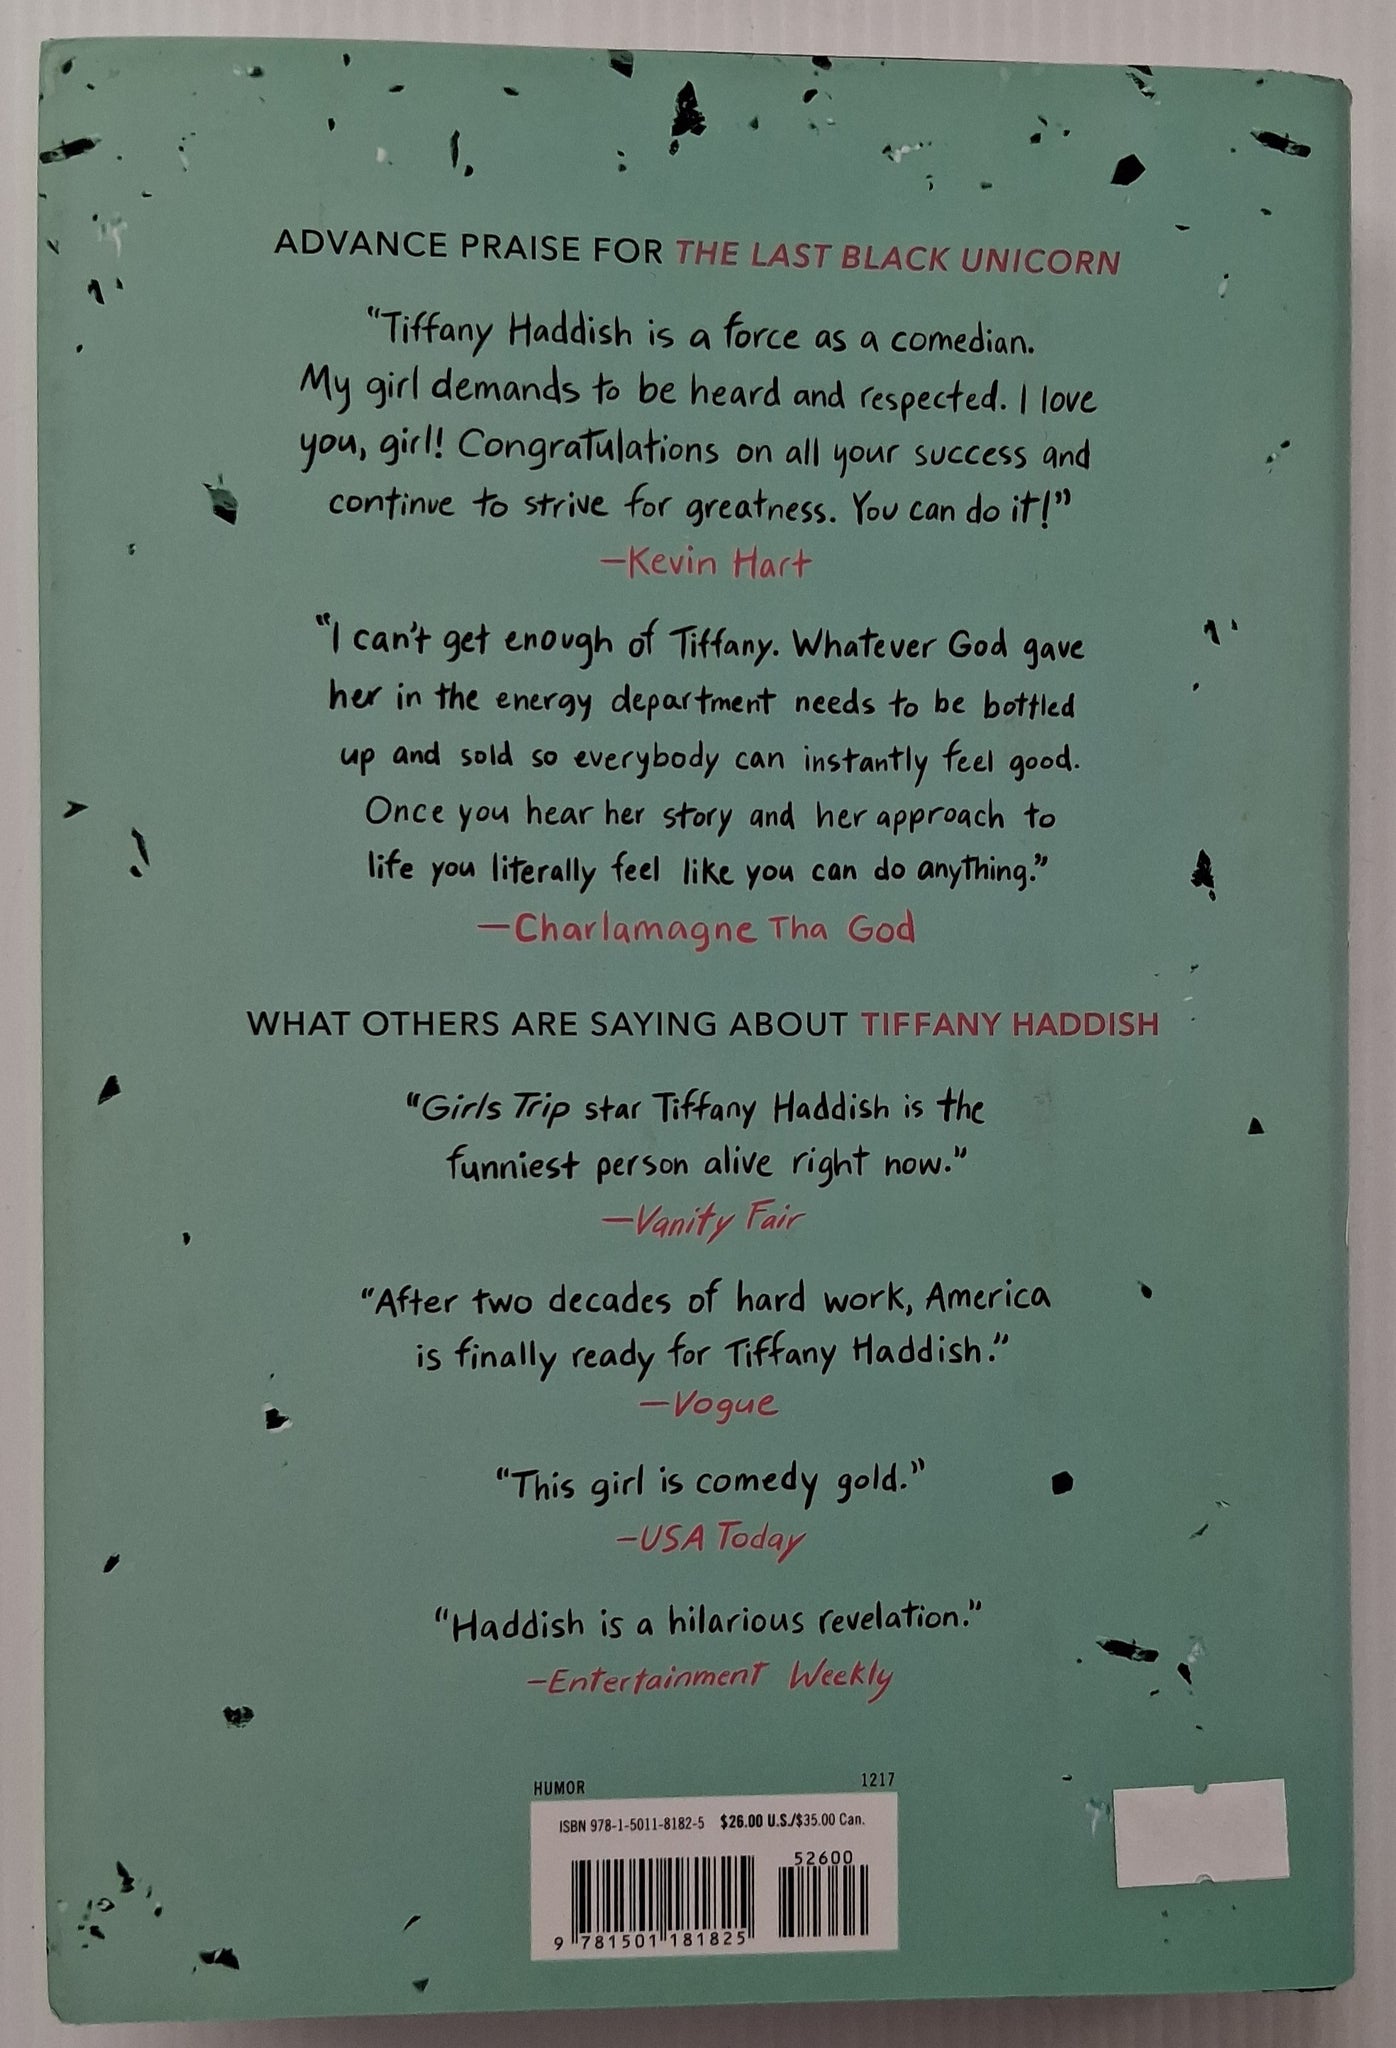 ADVANCE PRAISE FOR THE LAST BLACK UNICORN
“Tiffany Haddish is a force as a comedian.
My girl demands to be heard and respected. I love
you, girl! Congratulations on all your success and
continue to strive for greatness. You can do it!”
—Kevin Hart
“I can't get enough of Tiffany. Whatever God gave
her in the energy department needs to be bottled
up and sold so everybody can instantly feel good.
Once you hear her story and her approach to
life you literally feel like you can do anything.”
—Charlamagne Tha God
WHAT OTHERS ARE SAYING ABOUT TIFFANY HADDISH
“Girls Trip star Tiffany Haddish is the
funniest person alive right now.”
—Vanity Fair
“After two decades of hard work, America
is finally ready for Tiffany Haddish.”
—Vogue
“This girl is comedy gold.”
—USA Today
“Haddish is a hilarious revelation.”
—Entertainment Weekly
HUMOR 1217
ISBN 978-1-5011-8182-5 $26.00 U.S./$35.00 Can.
52600
9 781501 181825